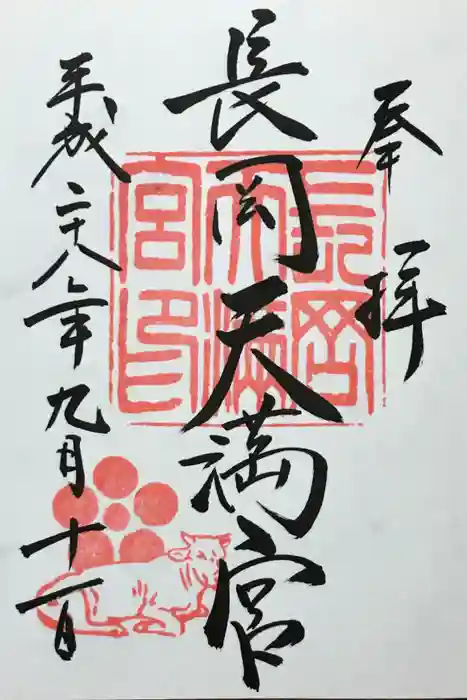 奉拝
長岡天満宮
平成二十八年九月十一日
長岡天満宮印